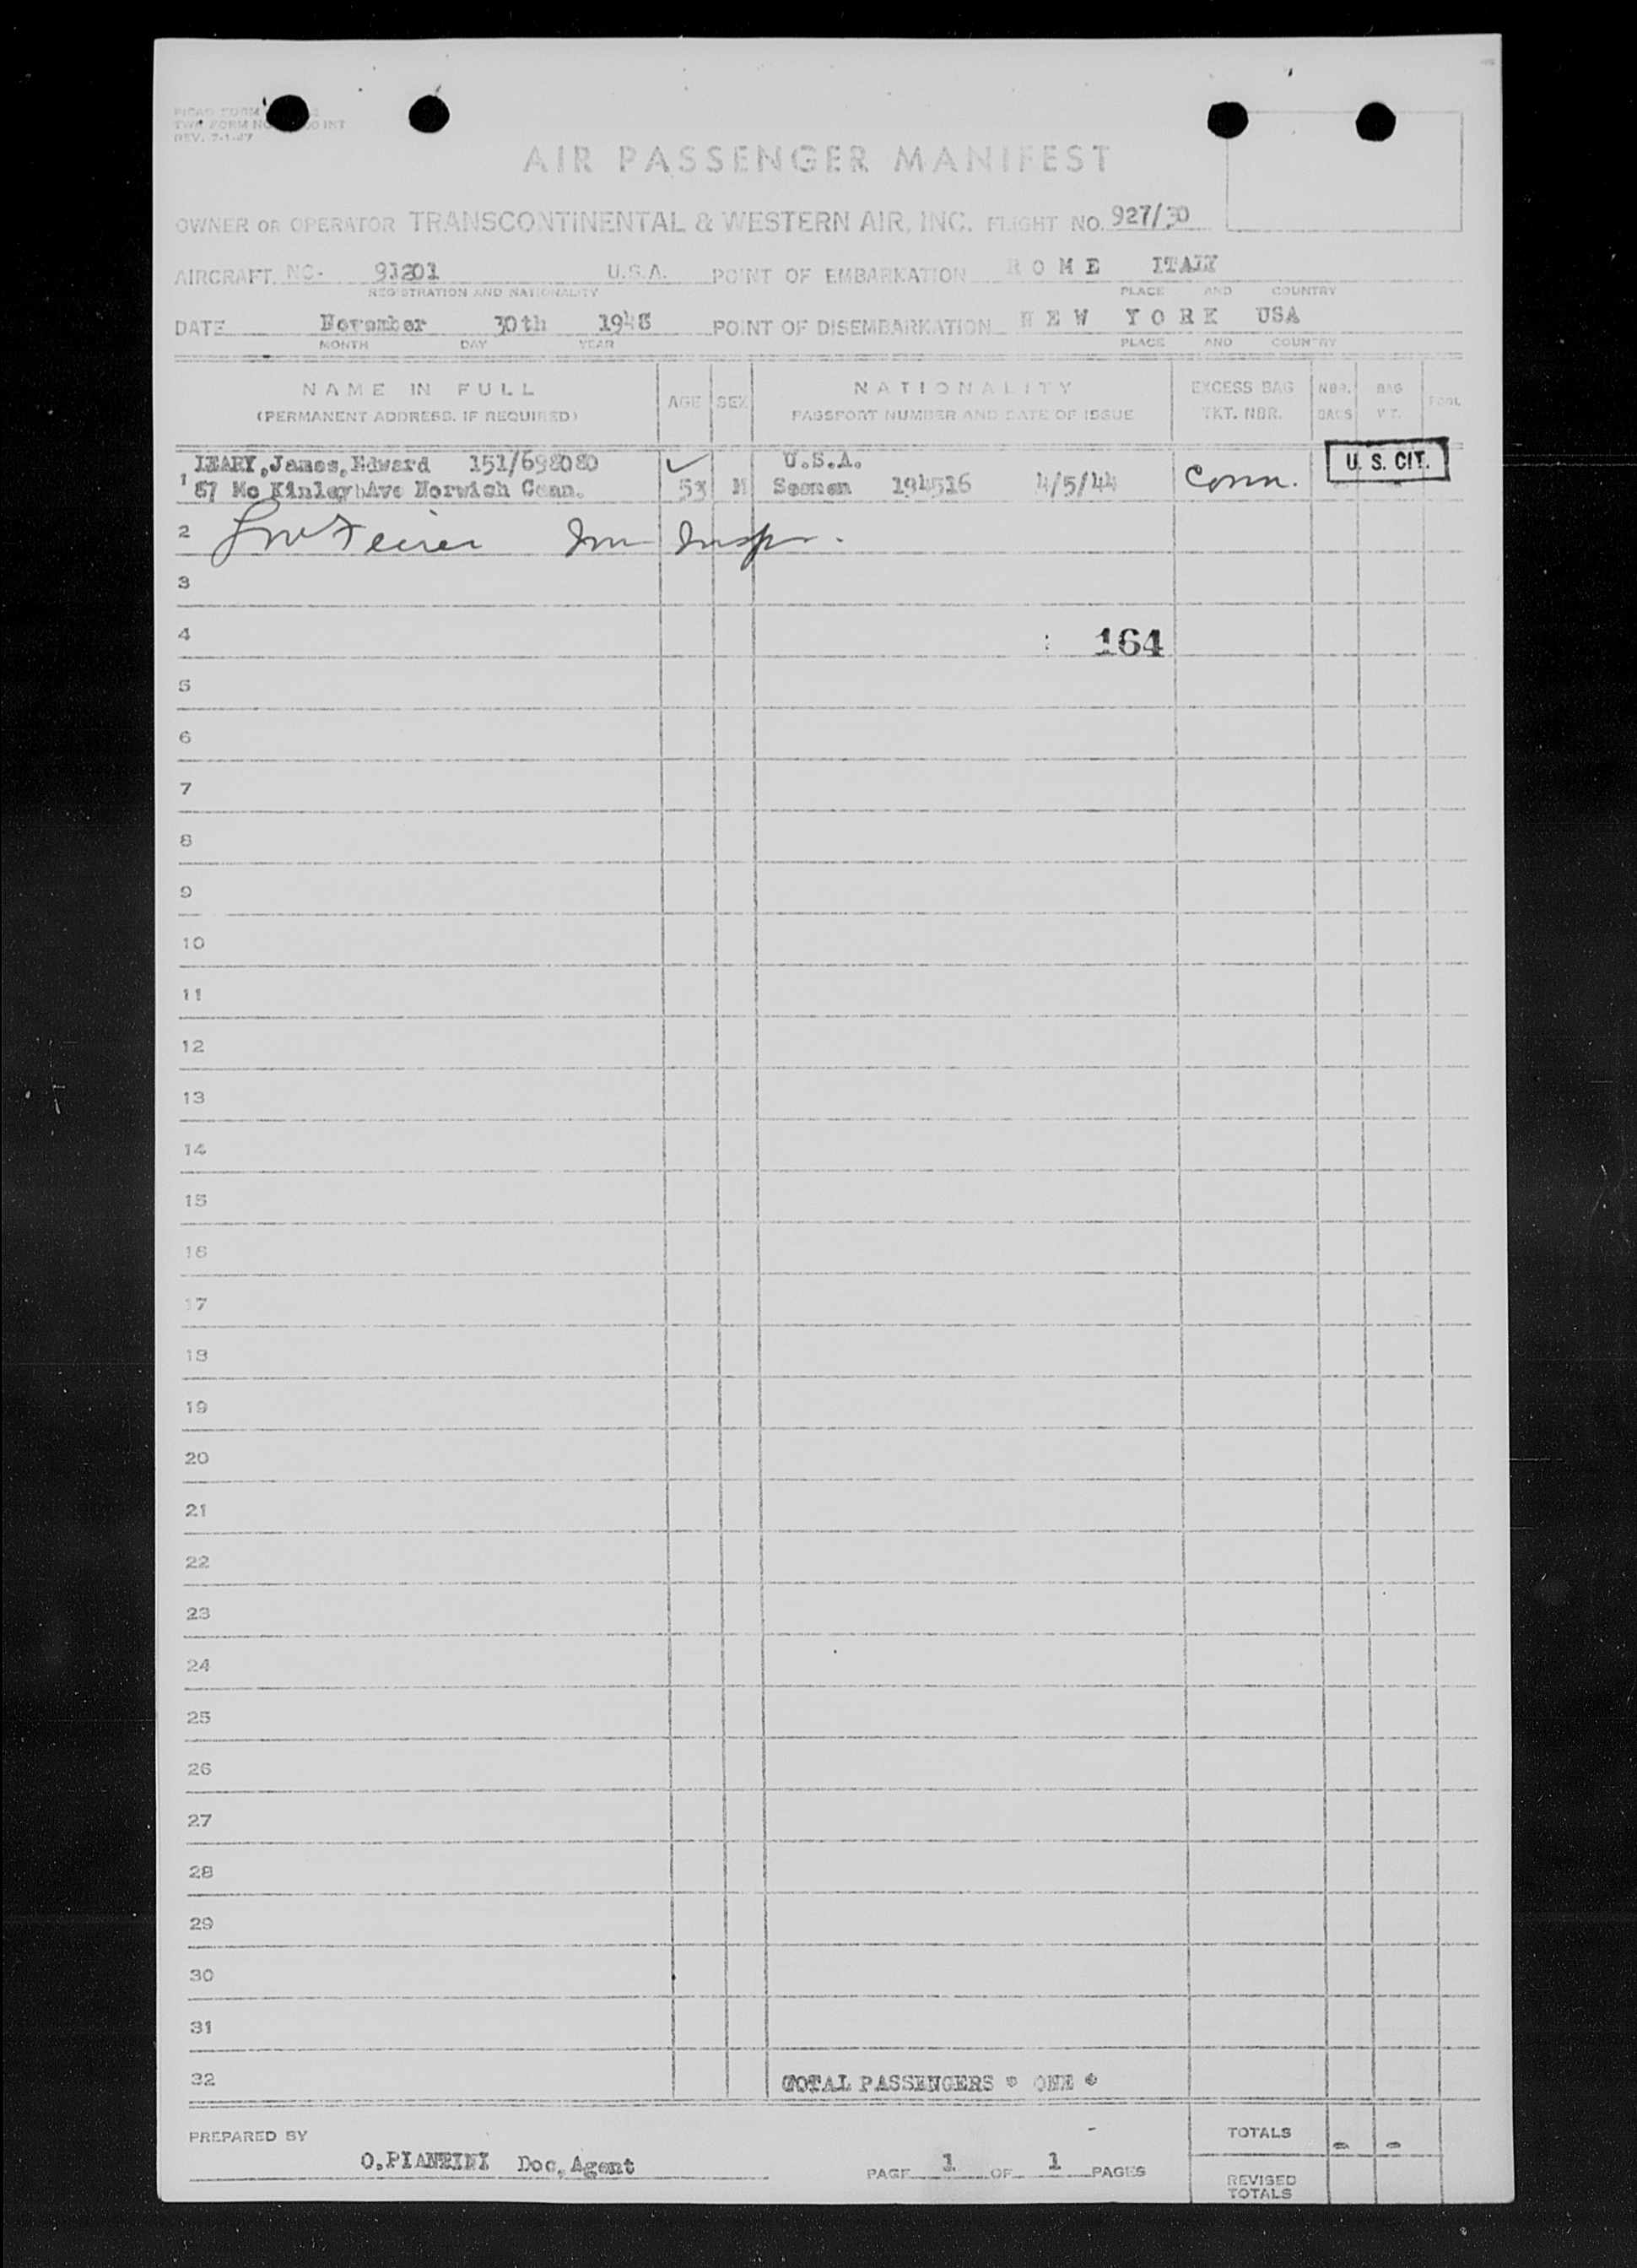 REV. 7-1-47
AIR PASSENGER MANIFEST
OWNER OR OPERATOR TRANSCONTINENTAL & WESTERN AIR, INC. FLIGHT NO. 927/30
AIRCRAFT NC- 91201 U.S.A. POINT OF EMBARKATION ROME ITALY
REGISTRATION AND NATIONALITY PLACE AND COUNTRY
DATE November 30th 1948 POINT OF DISEMBARKATION NEW YORK USA
MONTH DAY YEAR PLACE AND COUNTRY
NAME IN FULL AGE SEX NATIONALITY EXCESS BAG NBR. BAG
(PERMANENT ADDRESS, IF REQUIRED) PASSPORT NUMBER AND DATE OF ISSUE TKT. NBR. BAGS WT.
LEARY,James,Edward 151/698080 ✓ U.S.A. U. S. CIT.
1 87 Mc Kinley Ave Norwich Conn. M Seamen 194516 4/5/44 Conn.
2 Imm Inspr.
3
4 164
5
6
7
8
9
10
11
12
13
14
15
16
17
18
19
20
21
22
23
24
25
26
27
28
29
30
31
32 TOTAL PASSENGERS * ONE *
PREPARED BY TOTALS - -
Doc, Agent PAGE 1 OF 1 PAGES
REVISED
TOTALS